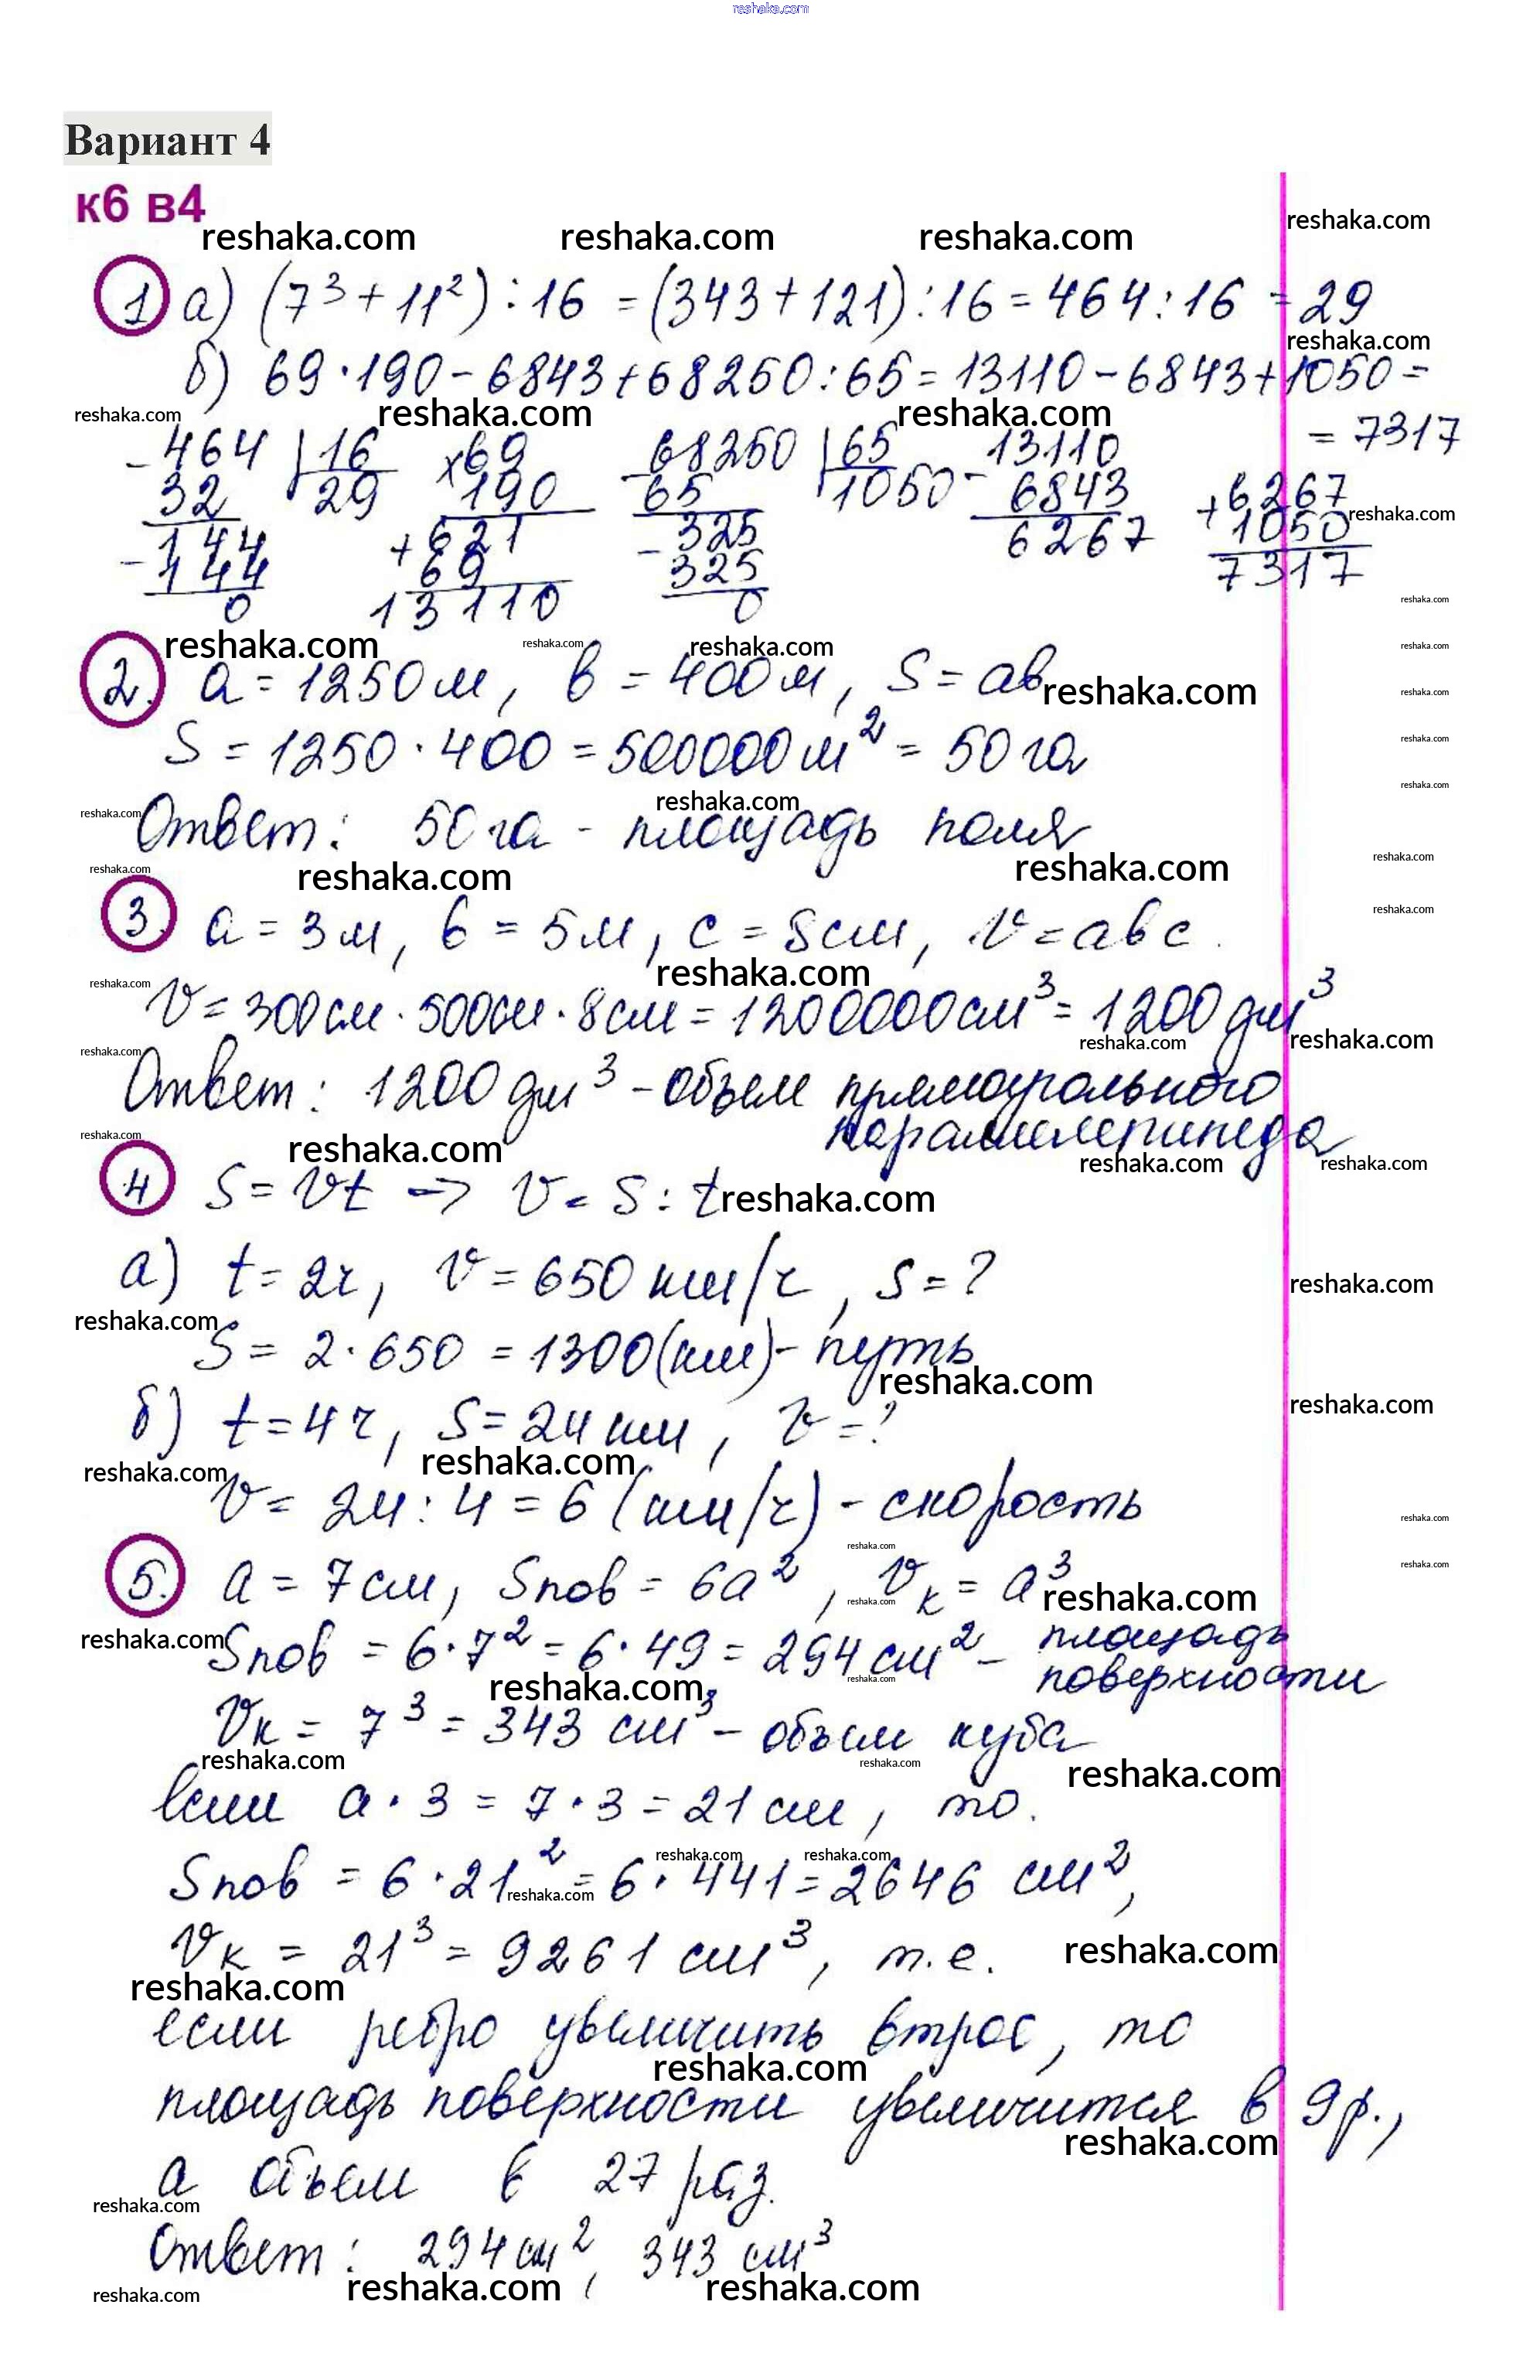 reshaka.com
Вариант 4
к6 в4
reshaka.com reshaka.com reshaka.com reshaka.com
1 а) (7³ + 11²) : 16 = (343 + 121) : 16 = 464 : 16 = 29
reshaka.com
б) 69 · 190 - 6843 + 68250 : 65 = 13110 - 6843 + 1050 =
reshaka.com reshaka.com reshaka.com
= 7317
- 464 | 16 × 69 - 68250 | 65 - 13110
32 29 190 65 1050 6843 + 6267
144 + 621 - 325 6267 1050 reshaka.com
- 144 69 325 7317
0 13110 0
reshaka.com
reshaka.com reshaka.com reshaka.com reshaka.com
2. a = 1250 м, в = 400 м, S = ав reshaka.com
reshaka.com
S = 1250 · 400 = 500000 м² = 50 га
reshaka.com
reshaka.com
reshaka.com reshaka.com
Ответ: 50 га - площадь поля
reshaka.com reshaka.com reshaka.com reshaka.com
3. a = 3 м, b = 5 м, c = 8 см, V = abc.
reshaka.com
reshaka.com reshaka.com
V = 300 см · 500 см · 8 см = 1200000 см³ = 1200 дм³
reshaka.com reshaka.com reshaka.com
Ответ: 1200 дм³ - объем прямоугольного
параллелепипеда
reshaka.com reshaka.com reshaka.com reshaka.com
4 S = Vt → V = S : t reshaka.com
а) t = 2ч, V = 650 км/ч, S = ?
reshaka.com
reshaka.com
S = 2 · 650 = 1300 (км) - путь
reshaka.com
б) t = 4ч, S = 24 км, V = ?
reshaka.com
reshaka.com reshaka.com
V = 24 : 4 = 6 (км/ч) - скорость
reshaka.com
reshaka.com
reshaka.com
5. a = 7 см, Sпов = 6a², Vк = a³
reshaka.com reshaka.com
reshaka.com
Sпов = 6 · 7² = 6 · 49 = 294 см² - площадь
поверхности
reshaka.com reshaka.com
Vк = 7³ = 343 см³ - объем куба
reshaka.com reshaka.com reshaka.com
если a · 3 = 7 · 3 = 21 см, то.
reshaka.com reshaka.com
Sпов = 6 · 21² = 6 · 441 = 2646 см²,
reshaka.com
Vк = 21³ = 9261 см³, т.е. reshaka.com
reshaka.com
если ребро увеличить втрое, то
reshaka.com
площадь поверхности увеличится в 9 р.,
reshaka.com
а объем в 27 раз.
reshaka.com
Ответ: 294 см², 343 см³
reshaka.com reshaka.com reshaka.com